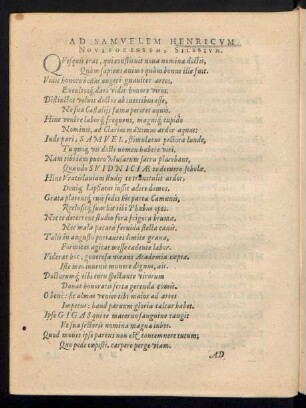 AD SAMVELEM HENRICVM
NOVIFORENSEM, SILESIVM.
QVisquis erat, qui constituit noua nomina doctis,
Quàm sapiens animo quàm bonus ille fuit.
Vidit honore bonas augeri gnauiter artes,
Excultosq́; dari vidit honore viros.
Distinctos voluit doctos ab inertibus esse,
Ne sua Castalijs fama periret aquis.
Hinc vendre laborq́; frequens, magniq́; cupido
Nominis, ad Clarium Dominus ardor aquas:
Inde pari, SAMVEL, stimulatus pectora laude,
Tu quoq́; vis docti nomen habere viri.
Nam tibi iam puero Musarum sacra placebant,
Quando SVIDNICIÆ te docuere scholæ.
Hinc Vratislauiam studijs te transtulit ardor,
Deniq́; Lipsiacas iussit adire domos.
Grata placentq́; tuis sedes hic parta Camœnis,
Rectiuśq; sunt hîc tibi Phœbus opes.
Nec te deterrent studio fera frigora brumæ,
Nec mala pacata feruida stella canis.
Talis in angusto portantes limite grana,
Formicas agitat messe cadente labor.
Viderat hoc, generosa vocans Academia cœpta.
Iste meo iuuenis munere dignus, ait.
Doctorumq́; tibi cœtu spectante virorum
Donat honorati serta gerenda comis.
O bene: sic almas venies tibi maior ad artes
Impetus: haud paruum gloria calcar habet.
Ipse GIGAS qui te materno sanguine tangit
Ve sua sectteris nomina magna iubet.
Quod monet ipse parens non est contemnere tutum;
Quo pede cœpisti, carpere perge viam.
AD